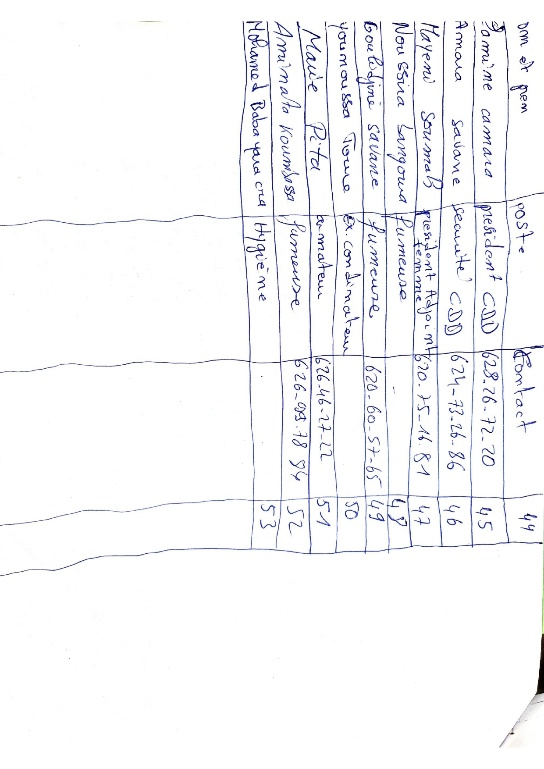 om et pren poste Contact 44
Lamine camara president CDD 628-26-72-20 45
Amara savane securité CDD 624-73-26-86 46
Mayeni Soumah president Adjoint femme 620-75-16 81 47
Noussira bangoura fumeuse 48
savane fumeuse 620-60-57-65 49
younoussa Toure Ex condinateur 50
Marie Pita armateur 626-46-27-22 51
Aminata Koumbassa fumeuse 626-99-78 94 52
Mohamed Baba Hygiène 53